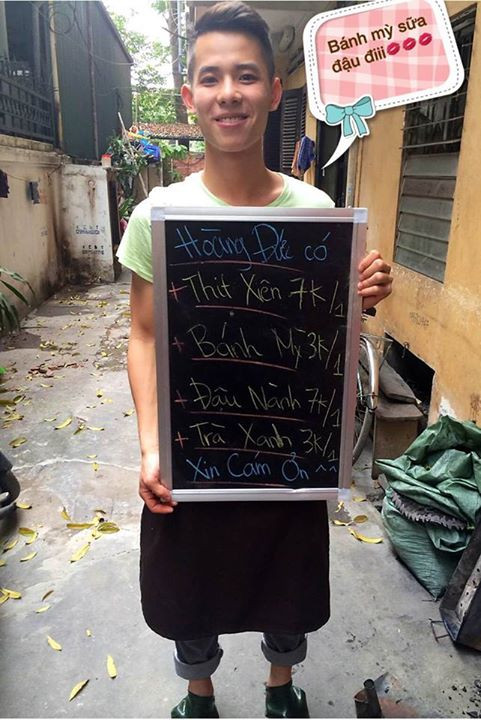 Bánh mỳ sữa
đậu điii💋💋💋
Hoàng Đức có
+ Thịt Xiên 7K/1
+ Bánh Mỳ 3K/1
+ Đậu Nành 7K/1
+ Trà Xanh 3K/1
Xin Cám Ơn ^^